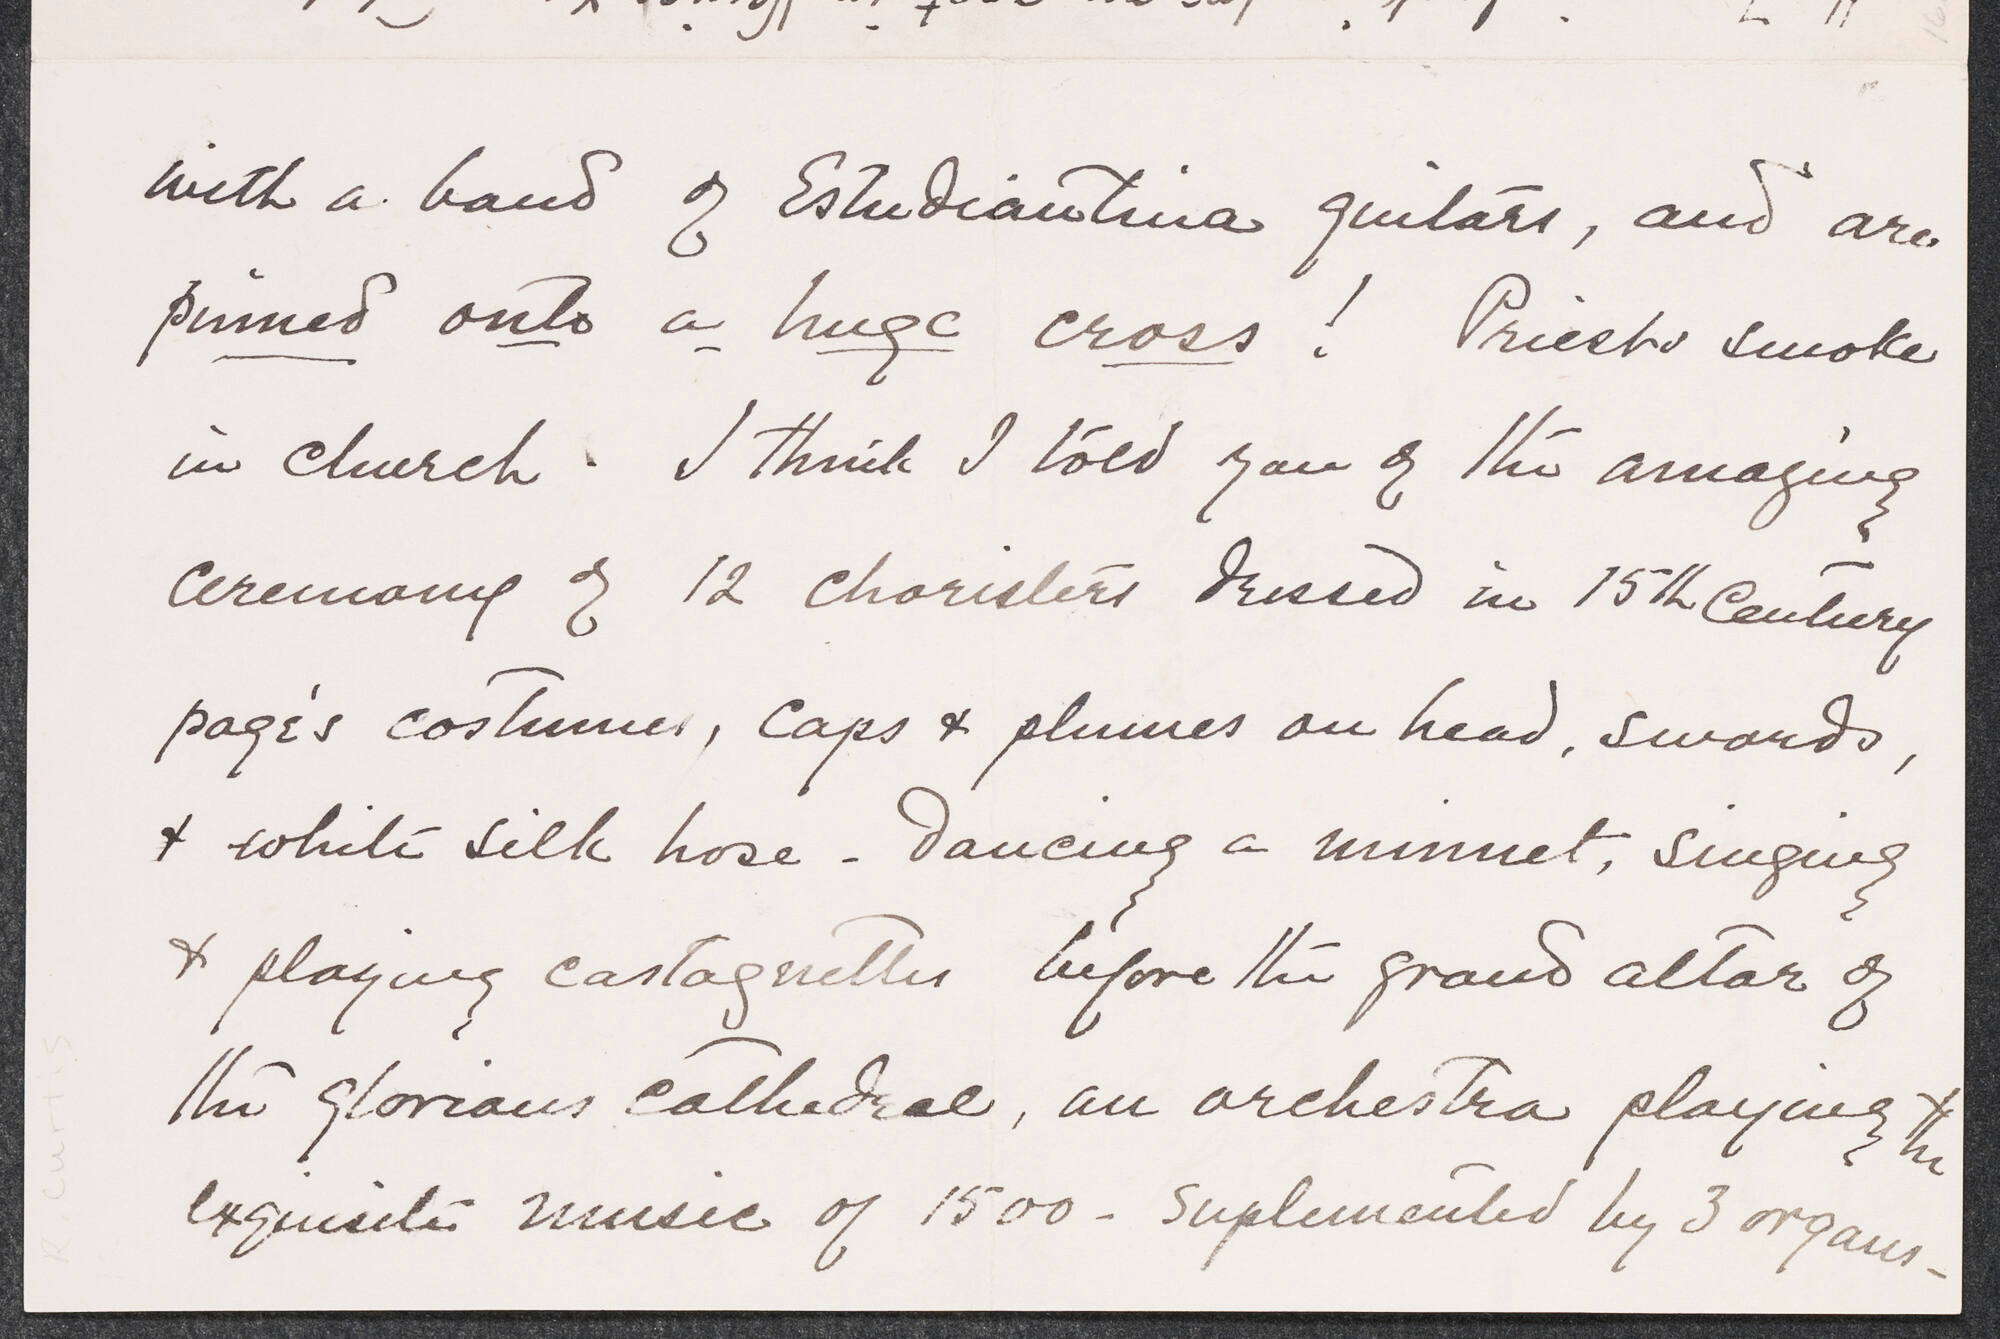 with a band of Estudiantina guitars, and are
pinned onto a huge cross! Priests smoke
in church. I think I told you of the amazing
ceremony of 12 choristers dressed in 15th Century
page's costumes, caps & plumes on head, swords,
& white silk hose - Dancing a minuet, singing
& playing castagnettes before the grand altar of
the glorious cathedral, an orchestra playing & the
exquisite music of 1500 - suplemented by 3 organs -
R. Curtis